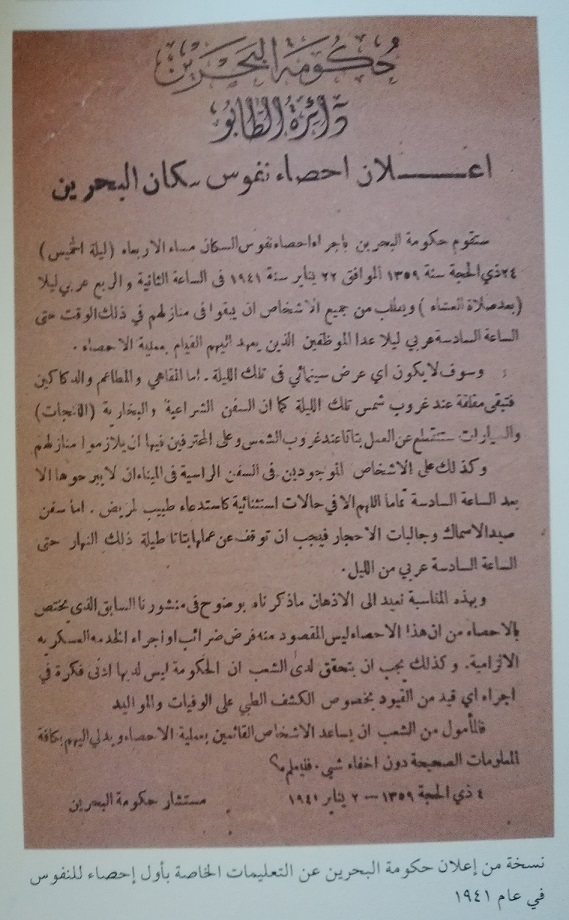 حكومة البحرين
دائرة الطابو
اعــــلان احصاء نفوس سكان البحرين
ستقوم حكومة البحرين باجراء احصاء نفوس السكان مساء الاربعاء (ليلة الخميس)
٢٤ ذي الحجة سنة ١٣٥٩ الموافق ٢٢ يناير سنة ١٩٤١ فى الساعة الثانية والربع عربي ليلا
(بعد صلاة العشاء) ويطلب من جميع الاشخاص ان يبقوا فى منازلهم في ذلك الوقت حتى
الساعة السادسة عربي ليلا عدا الموظفين الذين يعهد اليهم القيام بعملية الاحصاء .
وسوف لا يكون اي عرض سينمائي فى تلك الليلة . اما المقاهي والمطاعم والدكاكين
فتبقى مغلقة عند غروب شمس تلك الليلة كما ان السفن الشراعية والبخارية (اللنجات)
والسيارات ستنقطع عن العمل بتاتا عند غروب الشمس وعلى المحترفين فيها ان يلازموا منازلهم
وكذلك على الاشخاص الموجودين فى السفن الراسية فى الميناء ان لا يبرحوها الا
بعد الساعة السادسة تماما اللهم الا في حالات استثنائية كاستدعاء طبيب لمريض . اما سفن
صيد الاسماك وجالبات الاحجار فيجب ان توقف عن عملها بتاتا طيلة ذلك النهار حتى
الساعة السادسة عربي من الليل .
وبهذه المناسبة نعيد الى الاذهان ماذكرناه بوضوح فى منشورنا السابق الذي يختص
بالاحصاء من ان هذا الاحصاء ليس المقصود منه فرض ضرائب او اجراء الخدمه العسكريه
الالزامية . وكذلك يجب ان يتحقق لدى الشعب ان الحكومة ليس لديها ادنى فكرة في
اجراء اي قيد من القيود بخصوص الكشف الطبي على الوفيات والمواليد
فالمأمول من الشعب ان يساعد الاشخاص القائمين بعملية الاحصاء ويدلي اليهم بكافة
المعلومات الصحيحة دون اخفاء شيء . فليعلم ؟
٤ ذي الحجة ١٣٥٩ — ٢ يناير ١٩٤١ مستشار حكومة البحرين
نسخة من إعلان حكومة البحرين عن التعليمات الخاصة بأول إحصاء للنفوس
في عام ١٩٤١